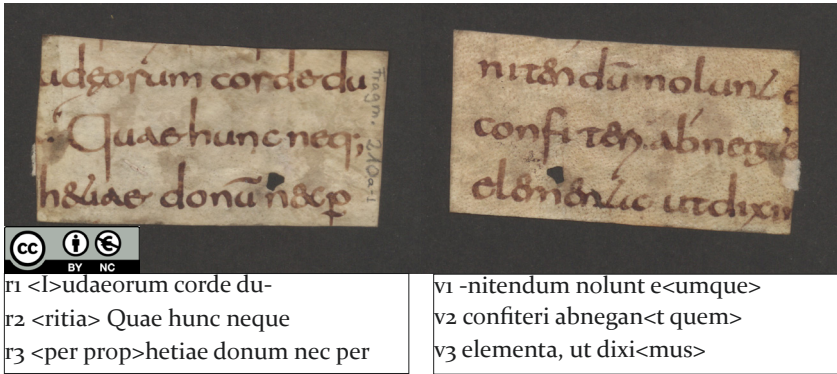 udęorum corde du
Quae hunc neq;
hetiae donū nec ꝑ
Fragm. 210a-1
nitendū nolunt e
confiteri abnegan
elementa ut dixim
cc BY NC
r1 <I>udaeorum corde du-
r2 <ritia> Quae hunc neque
r3 <per prop>hetiae donum nec per
v1 -nitendum nolunt e<umque>
v2 confiteri abnegan<t quem>
v3 elementa, ut dixi<mus>